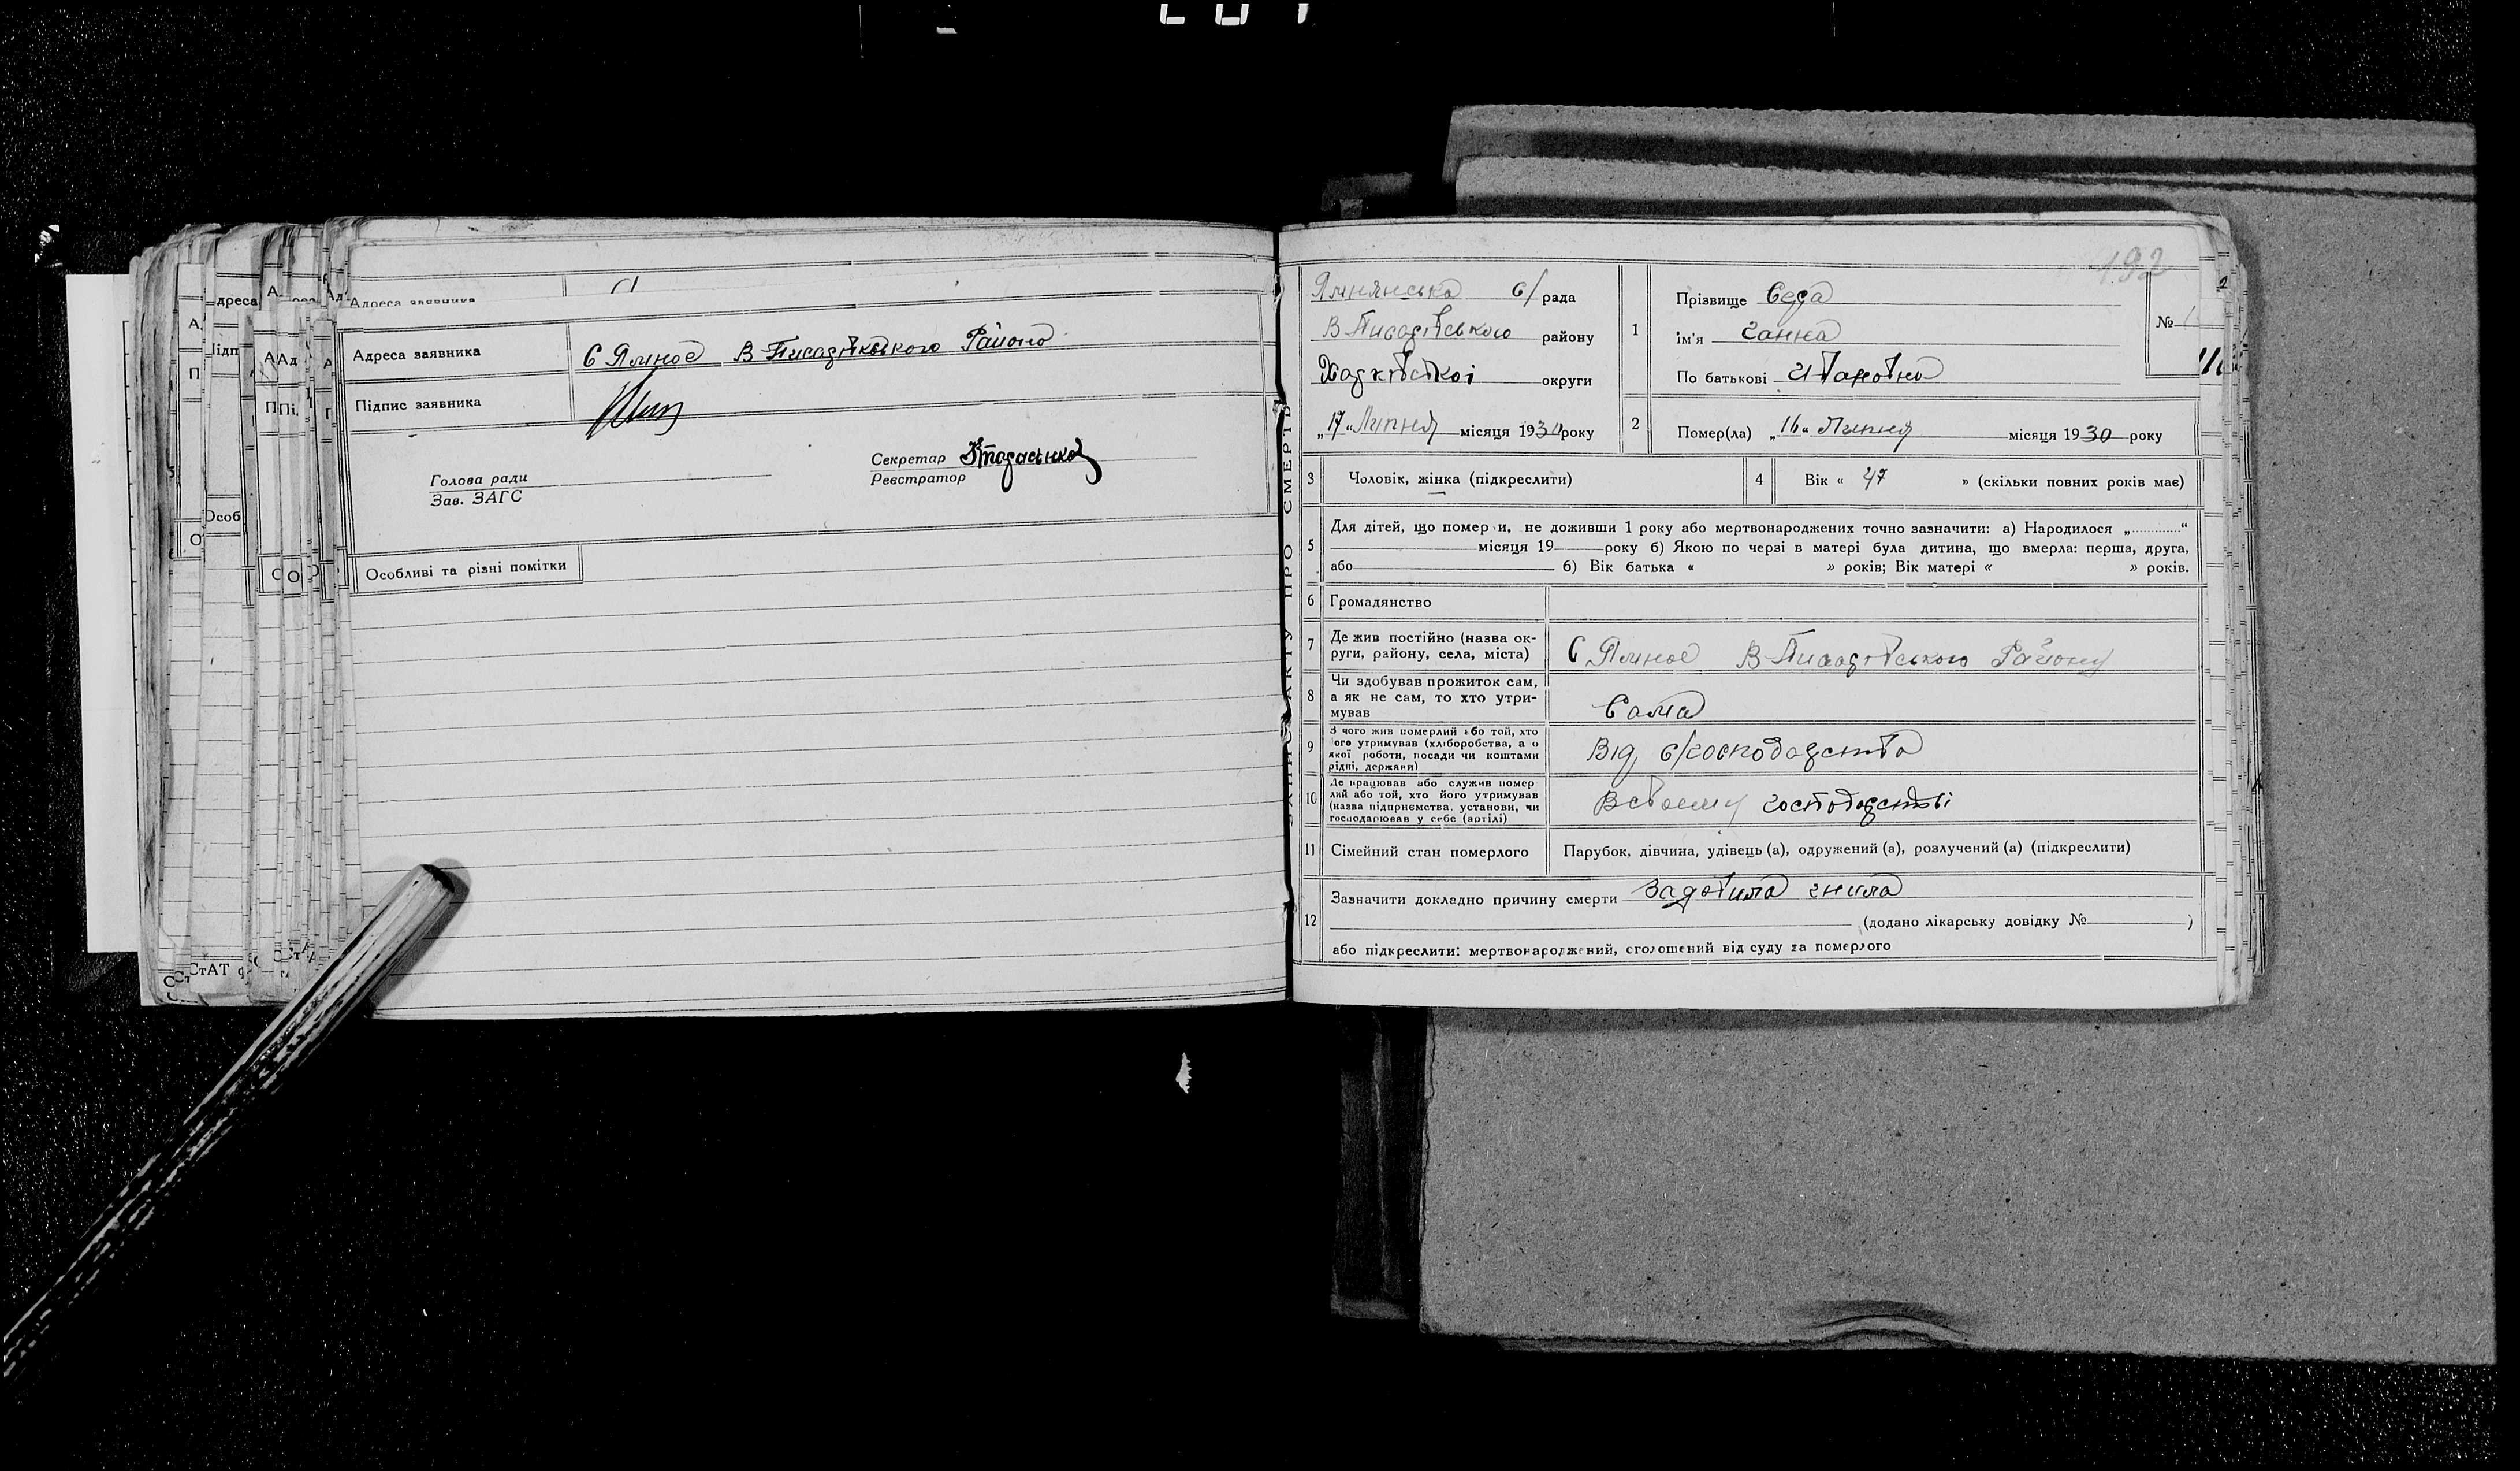 Адреса заявника
Адреса заявника С Ямное В-Писарівського Району
Підпис заявника
Голова ради
Зав. ЗАГС
Секретар
Реєстратор
Особливі та різні помітки
ЗАПИС АКТУ ПРО СМЕРТЬ
192
Ямнянська с/рада
В-Писарівського району
Харківської округи
„17„ Липня місяця 1930 року
1
Прізвище Сєра
ім'я Ганна
По батькові
№ 1
2
Помер(ла) „16„ Липня місяця 1930 року
3 Чоловік, жінка (підкреслити)
4 Вік « 47 » (скільки повних років має)
5 Для дітей, що померли, не доживши 1 року або мертвонароджених точно зазначити: а) Народилося „............“
місяця 19 року б) Якою по черзі в матері була дитина, що вмерла: перша, друга,
або б) Вік батька « » років; Вік матері « » років.
6 Громадянство
7 Де жив постійно (назва ок-
руги, району, села, міста) С Ямное В-Писарівського Району
8 Чи здобував прожиток сам,
а як не сам, то хто утри-
мував Сама
9 З чого жив померлий або той, хто
його утримував (хліборобства, а о
якої роботи, посади чи коштами
рідні, держави) Від с/господарства
10 Де працював або служив помер
лий або той, хто його утримував
(назва підприємства, установи, чи
господарював у себе (артілі) В своему господарстві
11 Сімейний стан померлого Парубок, дівчина, удівець (а), одружений (а), розлучений (а) (підкреслити)
12 Зазначити докладно причину смерти
(додано лікарську довідку № )
або підкреслити: мертвонароджений, оголошений від суду за померлого